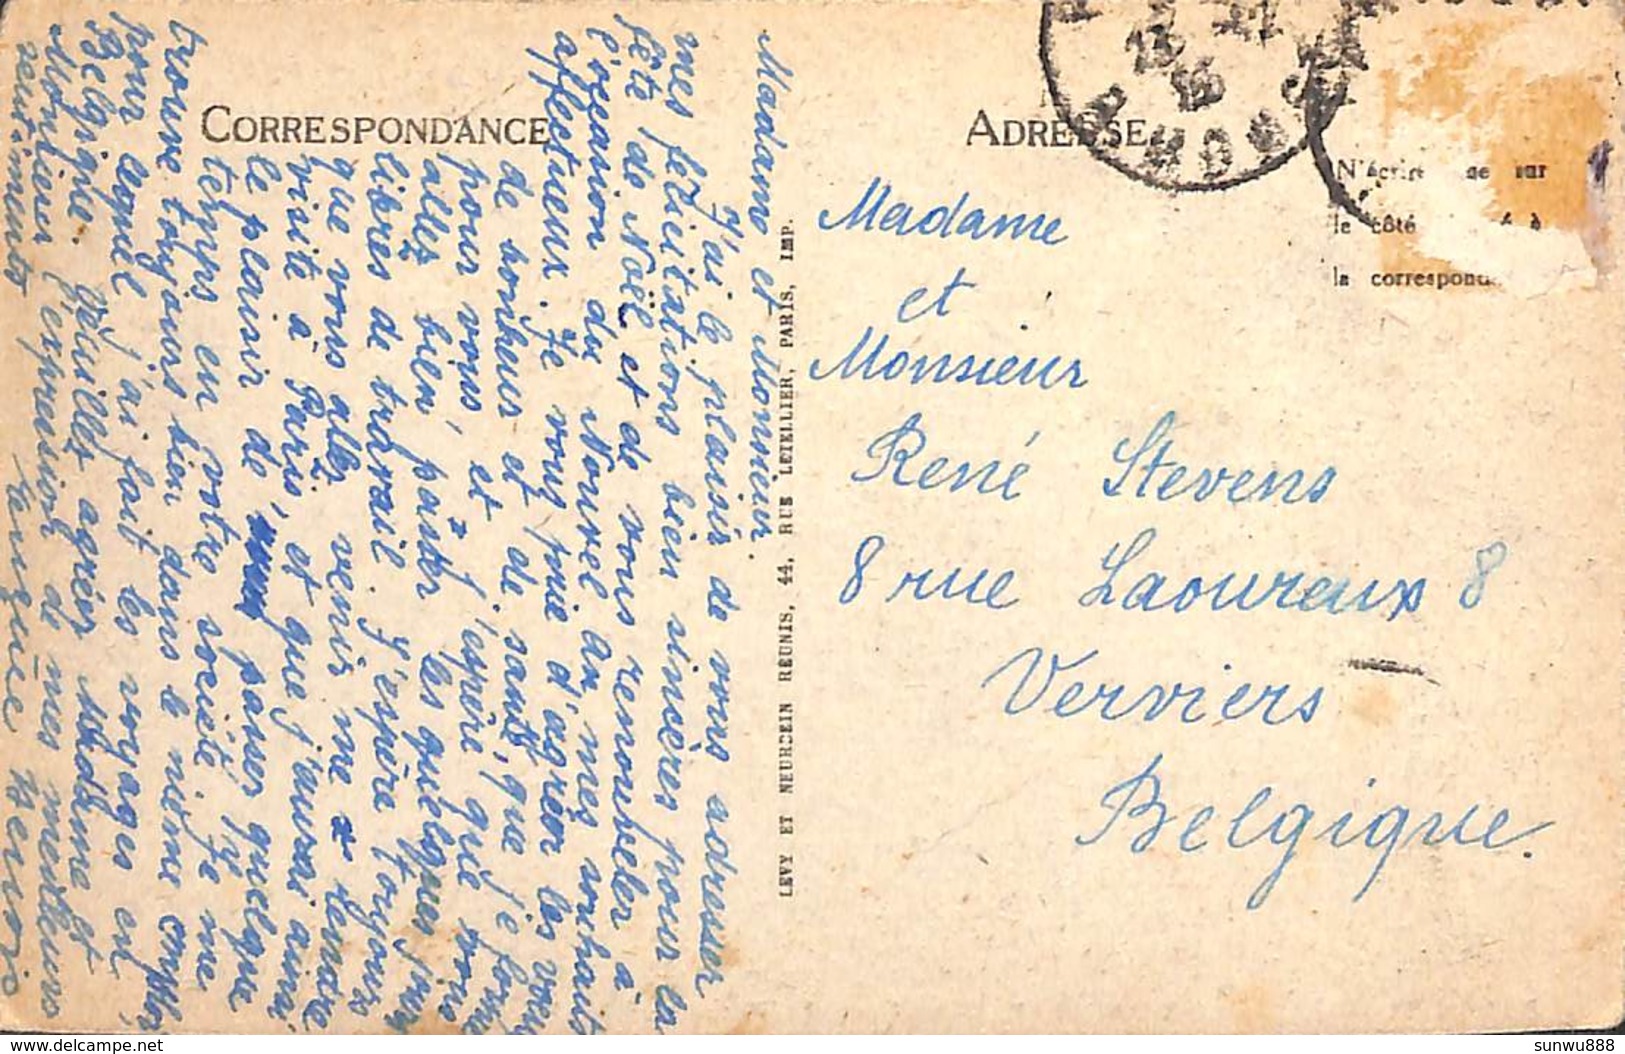 CORRESPONDANCE
Madame et Monsieur.
J'ai le plaisir de vous adresser
mes félicitations bien sincères pour la
fête de Noël et de vous renouveler à
l'occasion du Nouvel an, mes souhaits
affectueux. Je vous prie d'agréer les voeux
de bonheur et de santé, que je forme
pour vous, et j'espère, que vous
allez bien, passer les quelques jours
libres de travail. J'espère toujours
que vous allez venir me rendre
visite à Paris, et que j'aurai ainsi
le plaisir de passer quelque
temps en votre société. Je me
trouve toujours bien dans le même emploi
pour lequel j'ai fait les voyages en
Belgique. Veuillez agréer Madame et
Monsieur l'expression de mes meilleurs
sentiments
LEVY ET NEURDEIN REUNIS, 44, RUE LETELLIER, PARIS, IMP.
ADRESSE
N'écrire que sur
le côté à
la correspond
Madame
et
Monsieur
René Stevens
8 rue Laoureux 8
Verviers
Belgique.
sunwu888